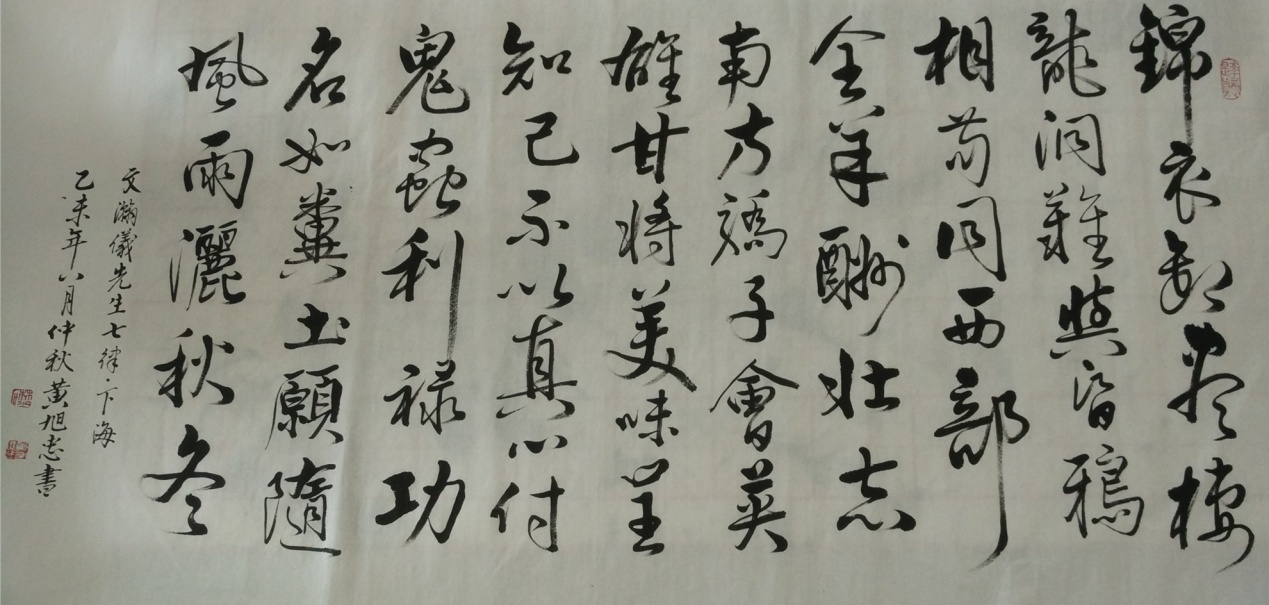 錦衣卸盡棲
龍洞難與昏鴉
相苟同西部
全羊酬壯志
南方矯子會英
雄甘將美味呈
知己不以真心付
鬼蟲利祿功
名如糞土願隨
風雨灑秋冬
文瀚儀先生七律·下海
乙未年八月仲秋黃旭志書